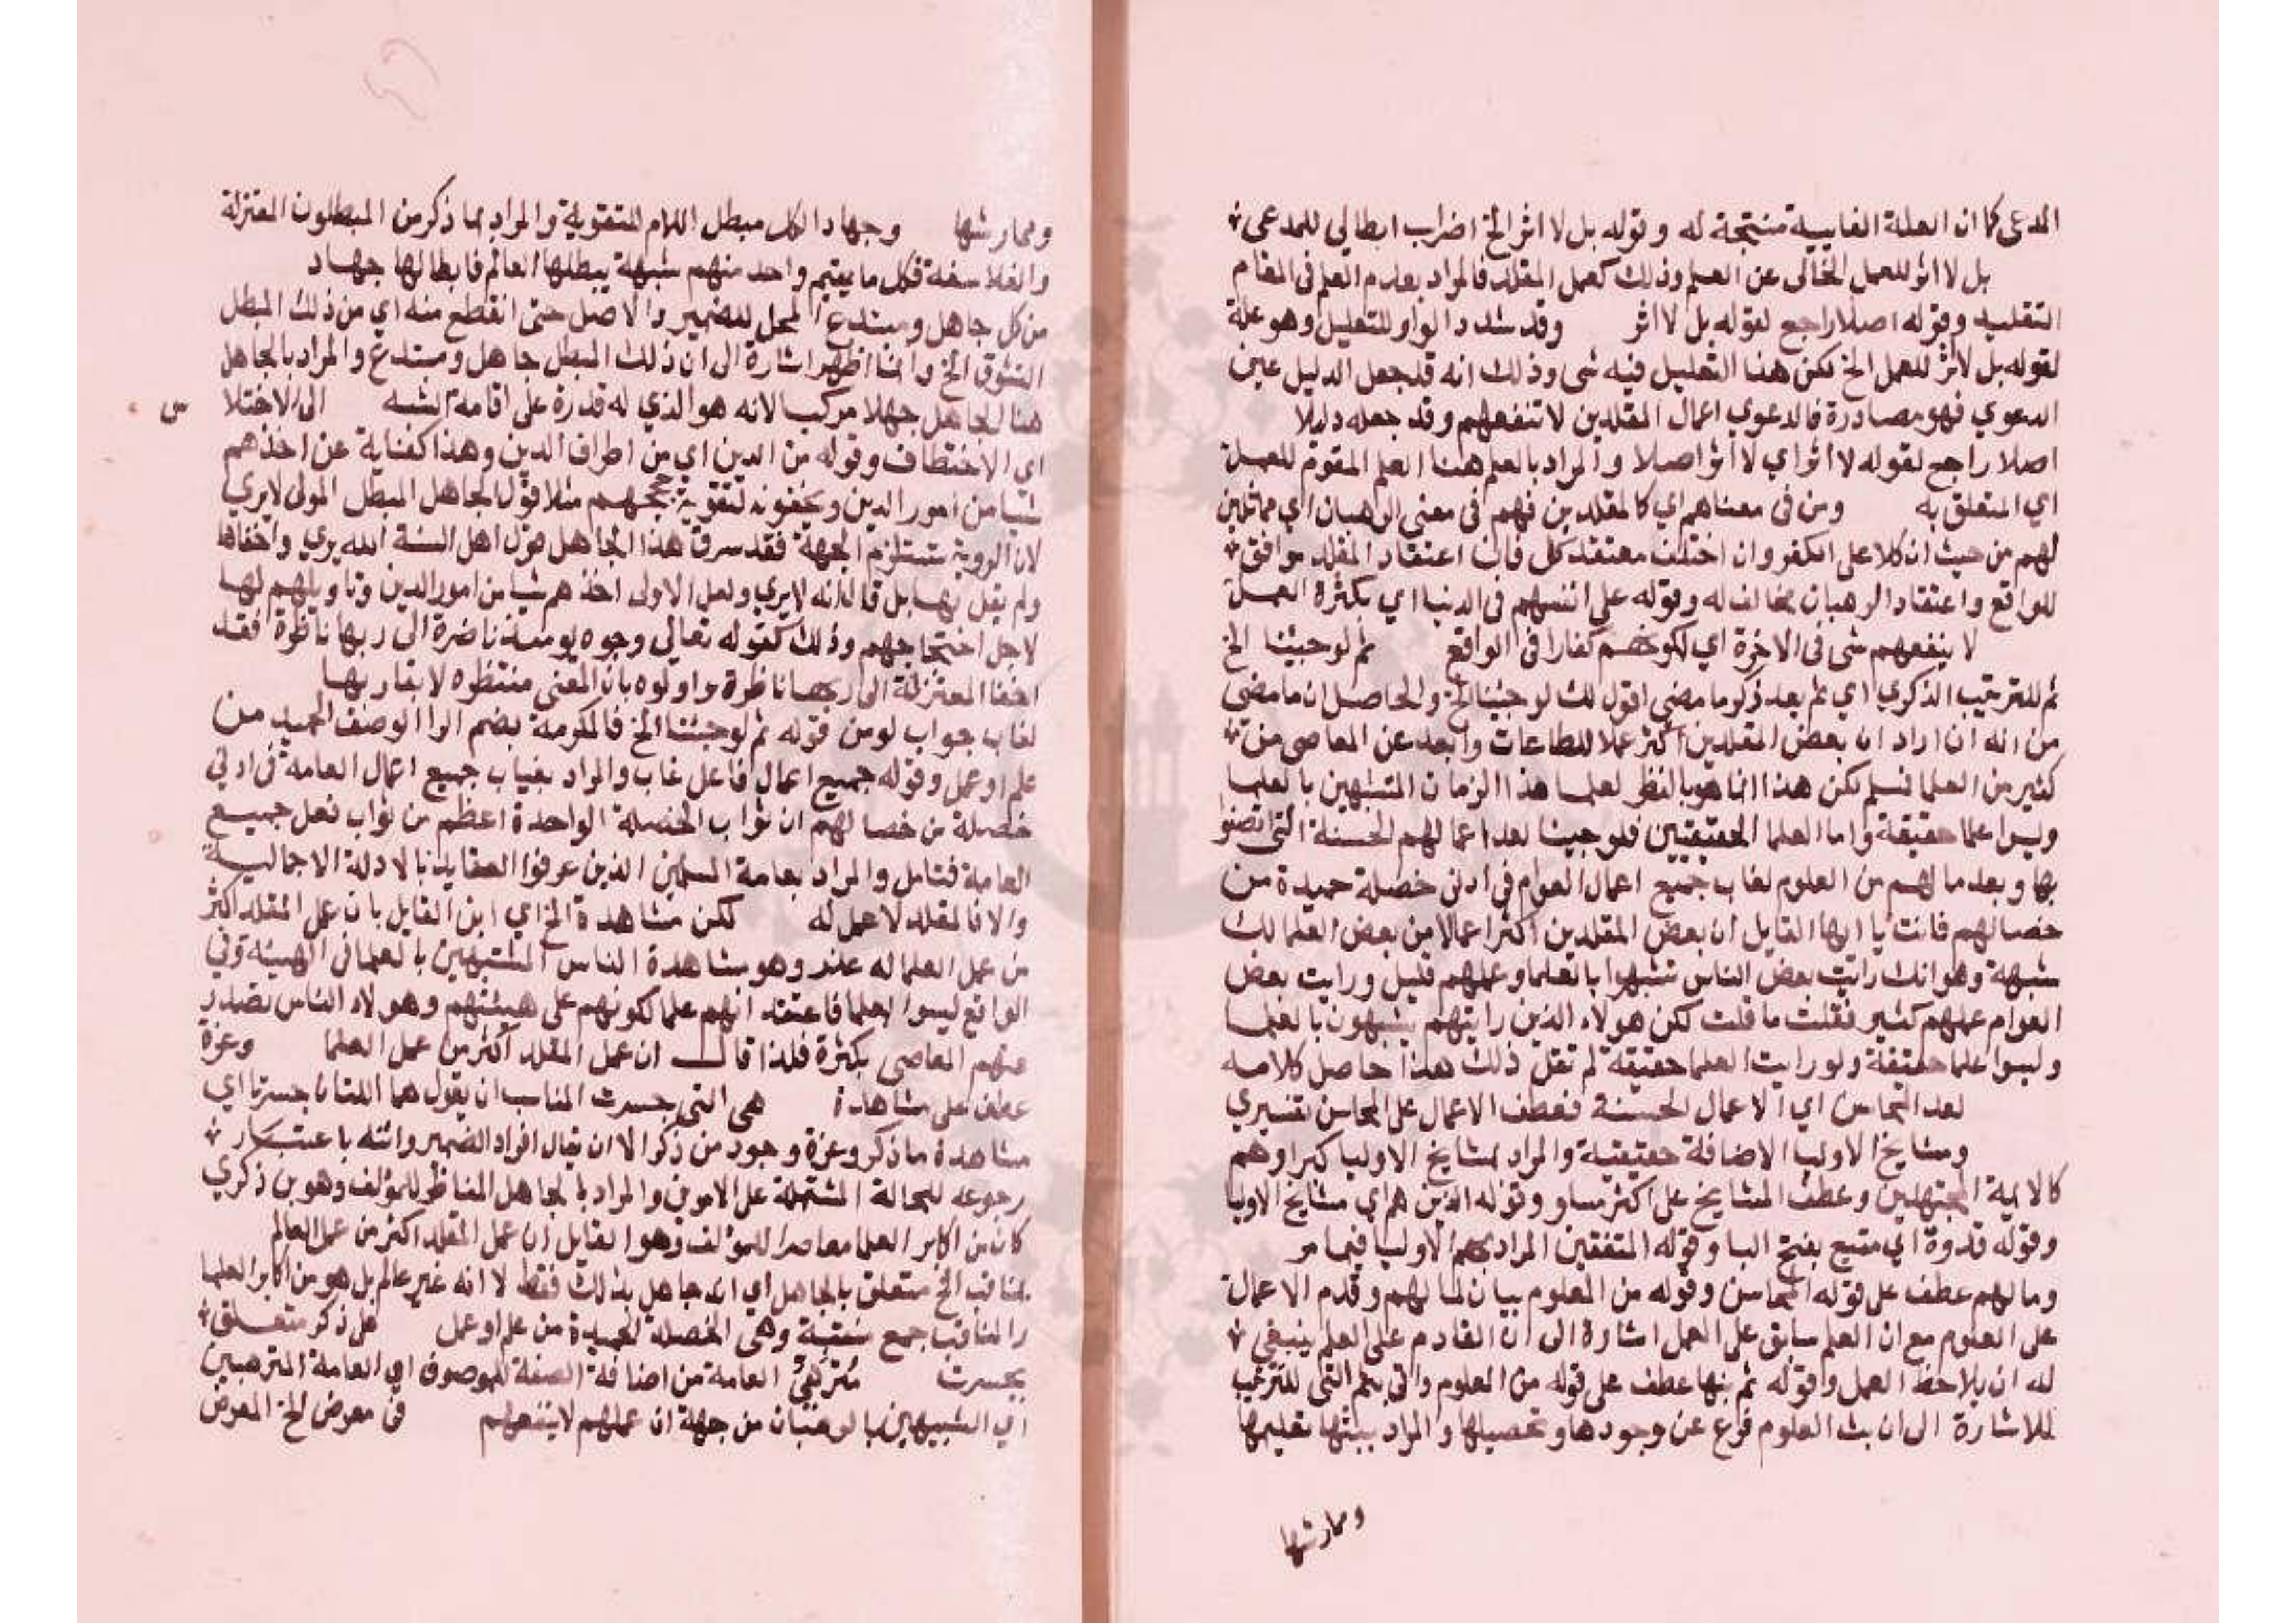 المدعى كما ان العلة الغايية منتجة له وقوله بل لا اثر الخ اضراب ابطالي للمدعى
بل لا اثر للعمل الخالى عن العلم وذلك كعمل المقلد فالمراد بعدم العلم فى المقام
التقليد وقوله اصلا راجع لقوله بل لا اثر وقد شدد الواو للتعليل وهو علة
لقوله بل لا اثر للعمل الخ لكن هذا التعليل فيه شى وذلك انه قد جعل الدليل عين
الدعوي فهو مصادرة فالدعوي اعمال المقلدين لا تنفعهم وقد جعله دليلا
اصلا راجع لقوله لا اثر اي لا اثر اصلا والمراد بالعلم هنا العلم المقوم للعمل
اي المتعلق به ومن فى معناهم اي كالمقلدين فهم فى معنى الرهبان اي مماثلين
لهم من حيث ان كلا على الكفر وان اختلف معتقد كل فان اعتقاد المقلد موافق
للواقع واعتقاد الرهبان مخالف له وقوله على انفسهم فى الدنيا اي بكثرة العمل
لا ينفعهم شى فى الاخرة اي لكونهم كفارا فى الواقع ثم لو جيئنا الخ
ثم للترتيب الذكري اي ثم بعد ذكر ما مضى اقول لك لو جيئنا الخ والحاصل ان ما مضى
من انه ان اراد ان بعض المقلدين اكثر عملا للطاعات وابعد عن المعاصى من
كثير من العلما فسلم لكن هذا انما هو بالنظر لعلما هذا الزمان المتشبهين بالعلما
وليسوا علما حقيقة واما العلما الحقيقيين فلو جينا لعد اعمالهم الحسنة التى اتصفوا
بها وبعد ما لهم من العلوم لغاب جميع اعمال العوام فى ادنى خصلة حميدة من
خصالهم فانت يا ايها القايل ان بعض المقلدين اكثر اعمالا من بعض العلما لك
شبهة وهو انك رايت بعض الناس تشبهوا بالعلما وعملهم قليل ورايت بعض
العوام عملهم كثير فقلت ما قلت لكن هولاء الذين رايتهم يتشبهون بالعلما
وليسوا علما حقيقة ولو رايت العلما حقيقة لم تقل ذلك هذا حاصل كلامه
لعد المحاسن اي الاعمال الحسنة فعطف الاعمال على المحاسن تفسيري
ومشايخ الاوليا الاضافة حقيقية والمراد بمشايخ الاوليا كبراوهم
كالايمة المجتهدين وعطف المشايخ على اكثر مساو وقوله الذين هم اي مشايخ الاوليا
وقوله قدوة اي متبع بفتح البا وقوله المتفقين المراد بهم الاوليا فيما مر
وما لهم عطف على قوله المحاسن وقوله من العلوم بيان لما لهم وقدم الاعمال
على العلوم مع ان العلم سابق على العمل اشارة الى ان القادم على العلم ينبغي
له ان يلاحظ العمل وقوله ثم بثها عطف على قوله من العلوم واتى بثم التى للترتيب
للاشارة الى ان بث العلوم فرع عن وجودها وتحصيلها والمراد ببثها تعليمها
وممارستها
وممارستها وجهاد الكل مبطل اللام للتقوية والمراد بما ذكر من المبطلون المعتزلة
والفلاسفة فكل ما يقيم واحد منهم شبهة يبطلها العالم فابطالها جهاد
من كل جاهل ومبتدع المحل للضمير والاصل حتى انقطع منه اي من ذلك المبطل
التشوق الخ وانما اظهر اشارة الى ان ذلك المبطل جاهل ومبتدع والمراد بالجاهل
هنا الجاهل جهلا مركبا لانه هو الذي له قدرة على اقامة الشبه الى الاختلا س
اي الاختطاف وقوله من الدين اي من اطراف الدين وهذا كناية عن اخذهم
شيا من امور الدين ويخفونه لتقوية حججهم مثلا قول الجاهل المبطل المولى لا يري
لان الروية تستلزم الجهة فقد سرق هذا الجاهل قول اهل السنة الله يري واخفاها
ولم يقل بها بل قال انه لا يري ولعل الاولى اخذهم شيا من امور الدين وتاويلهم لها
لاجل احتجاجهم وذلك كقوله تعالى وجوه يومئذ ناضرة الى ربها ناظرة فقد
اخفا المعتزلة الى ربها ناظرة واولوه بان المعنى منتظره لا بقاربها
لغاب جواب لو من قوله ثم لو جيئنا الخ فالمكرمة بضم الرا الوصف الحميد من
علم او عمل وقوله جميع اعمال فاعل غاب والمراد بغياب جميع اعمال العامة فى ادنى
خصلة من خصالهم ان ثواب الخصلة الواحدة اعظم من ثواب فعل جميع
العامة فتامل والمراد بعامة المسلمين الذين عرفوا العقايد بالادلة الاجمالية
والا فالمقلد لا عمل له لكن مشاهدة الخ اي ابن القايل بان عمل المقلد اكثر
من عمل العلما له عذر وهو مشاهدة الناس المتشبهين بالعلما فى الهيئة وفى
الواقع ليسوا بعلما فاعتقد انهم علما لكونهم على هيئتهم وهولاء الناس تصدر
منهم المعاصى بكثرة فلذا قال ان عمل المقلد اكثر من عمل العلما وعزة
عطف على مشاهدة هى التى جسرت المناسب ان يقول هما اللتان جسرتا اي
مشاهدة ما ذكر وعزة وجود من ذكر الا ان يقال افراد الضمير وانثه باعتبار
رجوعه للحالة المشتملة على الامرين والمراد بالجاهل المناظر للمؤلف وهو بن ذكري
كان من اكابر العلما معاصرا للمؤلف وهو القايل ان عمل المقلد اكثر من عمل العالم
بمناقب الخ متعلق بالجاهل اي انه جاهل بذلك فقط لا انه غير عالم بل هو من اكابر العلما
والمناقب جمع منقبة وهى الخصلة الحميدة من علم او عمل على ذكر متعلق
بجسرت مترهبى العامة من اضافة الصفة للموصوف اي العامة المترهبين
اي الشبيهين بالرهبان من جهة ان عملهم لا ينفعهم فى معرض الخ المعرض